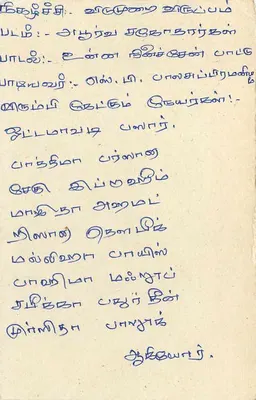 நிகழ்ச்சி:- விடுமுறை விருப்பம்
படம்:- அபூர்வ சகோதரர்கள்
பாடல்:- உன்ன நினைச்சேன் பாட்டு
பாடியவர்:- எஸ். பி. பாலசுப்பிரமணியம்
விரும்பி கேட்கும் நேயர்கள்:-
ஓட்டமாவடி பஸார்.
பாத்திமா பர்ஸானா
சேகு இப்றாஹிம்
மாஹிதா அஹமட்
றிஸானா தௌபீக்
மல்லிஹா பாயிஸ்
பாஹிமா மஃறூப்
சமீக்கா பதுர்தீன்
முர்ஸிதா பாறூக்
ஆகியோர்.